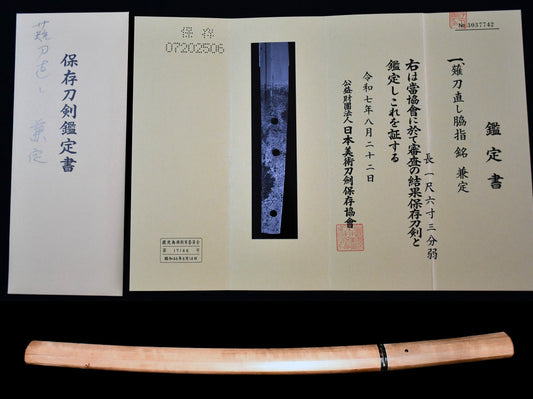 保存刀剣鑑定書
薙刀直し 兼定
保存
07202506
№ 3037742
鑑定書
一、薙刀直し脇指 銘 兼定
長 一尺六寸三分弱
右は當協會に於て審査の結果保存刀剣と
鑑定しこれを証する
令和七年八月二十二日
公益財團法人 日本美術刀劍保存協會
鹿児島県教育委員会